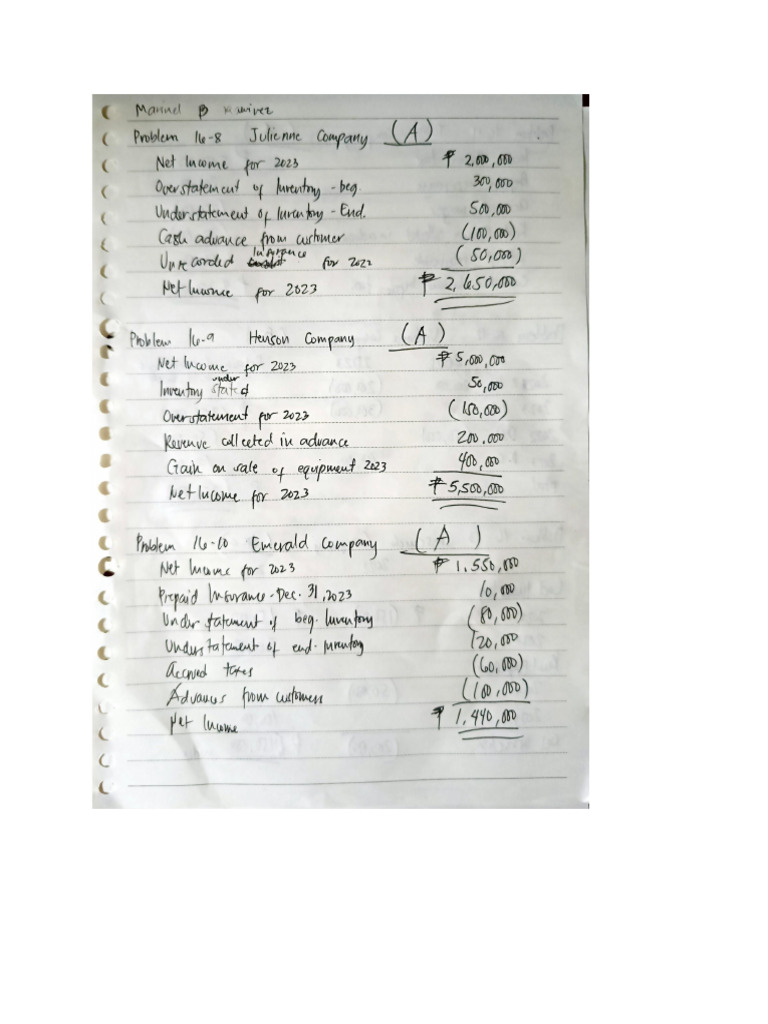 Marinel B Ramirez
Problem 16-8 Julienne Company (A)
Net Income for 2023 ₱ 2,000,000
Overstatement of Inventory - beg. 300,000
Understatement of Inventory - End. 500,000
Cash advance from customer (100,000)
Unrecorded Insurance for 2022 (50,000)
Net Income for 2023 ₱ 2,650,000
Problem 16-9 Henson Company (A)
Net Income for 2023 ₱ 5,000,000
Inventory understated 50,000
Overstatement for 2023 (150,000)
Revenue collected in advance 200,000
Gain on sale of equipment 2023 400,000
Net Income for 2023 ₱ 5,500,000
Problem 16-10 Emerald Company (A)
Net Income for 2023 ₱ 1,550,000
Prepaid Insurance - Dec. 31, 2023 10,000
Understatement of beg. Inventory (80,000)
Understatement of end. Inventory 120,000
Accrued taxes (60,000)
Advances from customers (100,000)
Net Income ₱ 1,440,000